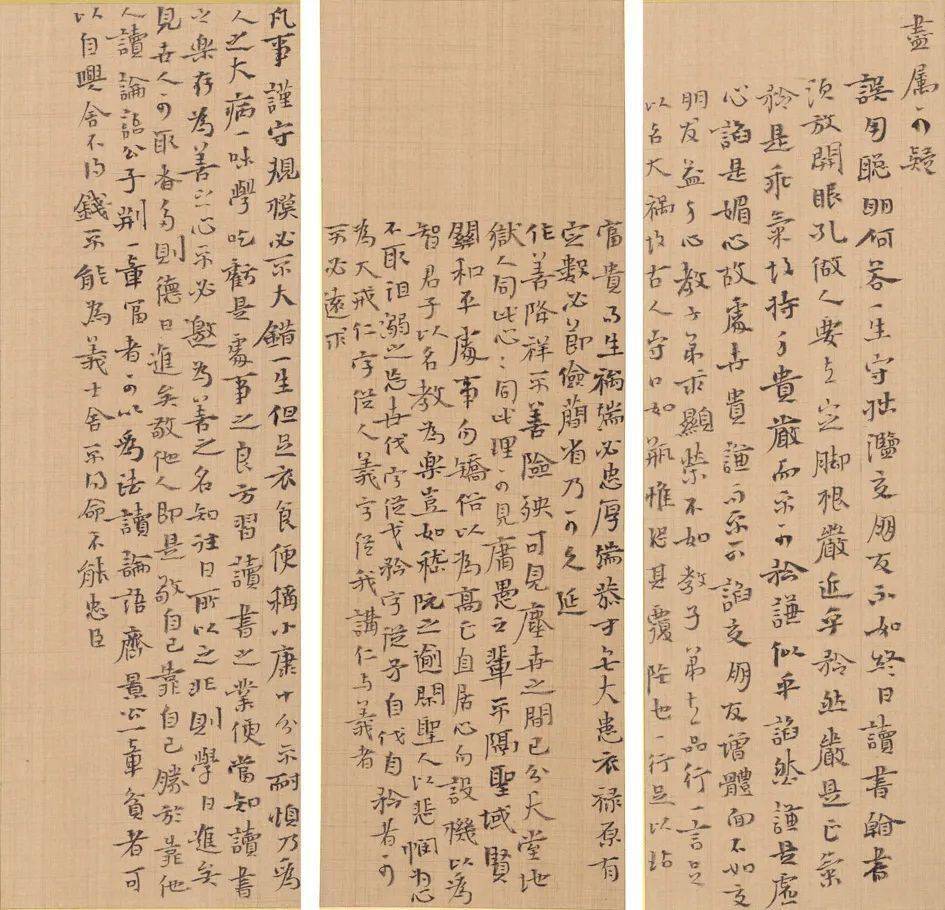 盡屬可疑
誤用聰明何若一生守拙濫交朋友不如終日讀書看書
須放開眼孔做人要立定脚根嚴近乎矜然嚴是正氣
矜是乖氣故持身貴嚴而不可矜謙似乎諂然謙是虛
心諂是媚心故處世貴謙而不可諂交朋友增體面不如交
朋友益身心教子弟求顯榮不如教子弟立品行一言足
以召大禍故古人守口如瓶惟恐其覆墜也一行足以玷
富貴易生禍端必忠厚端恭才無大患衣祿原有
定數必節儉簡省乃可久延
作善降祥不善險殃可見塵世之間已分天堂地
獄人同此心心同此理可見庸愚之輩不隔聖域賢
關和平處事勿矯俗以為高正直居心勿設機以為
智君子以名教為樂豈如嵇阮之逾閑聖人以悲憫為心
不取沮溺之忘世伐字從戈矜字從矛自伐自矜者可
為大戒仁字從人義字從我講仁与義者
不必遠求
凡事謹守規模必不大錯一生但足衣食便稱小康十分不耐煩乃為
人之大病一味學吃虧是處事之良方習讀書之業便當知讀書
之樂存為善之心不必邀為善之名知往日所以之非則學日進矣
見世人可取者多則德日進矣敬他人即是敬自己靠自己勝於靠他
人讀論語公子荊一章富者可以為法讀論語齊景公一章貧者可
以自興舍不得錢不能為義士舍不得命不能忠臣